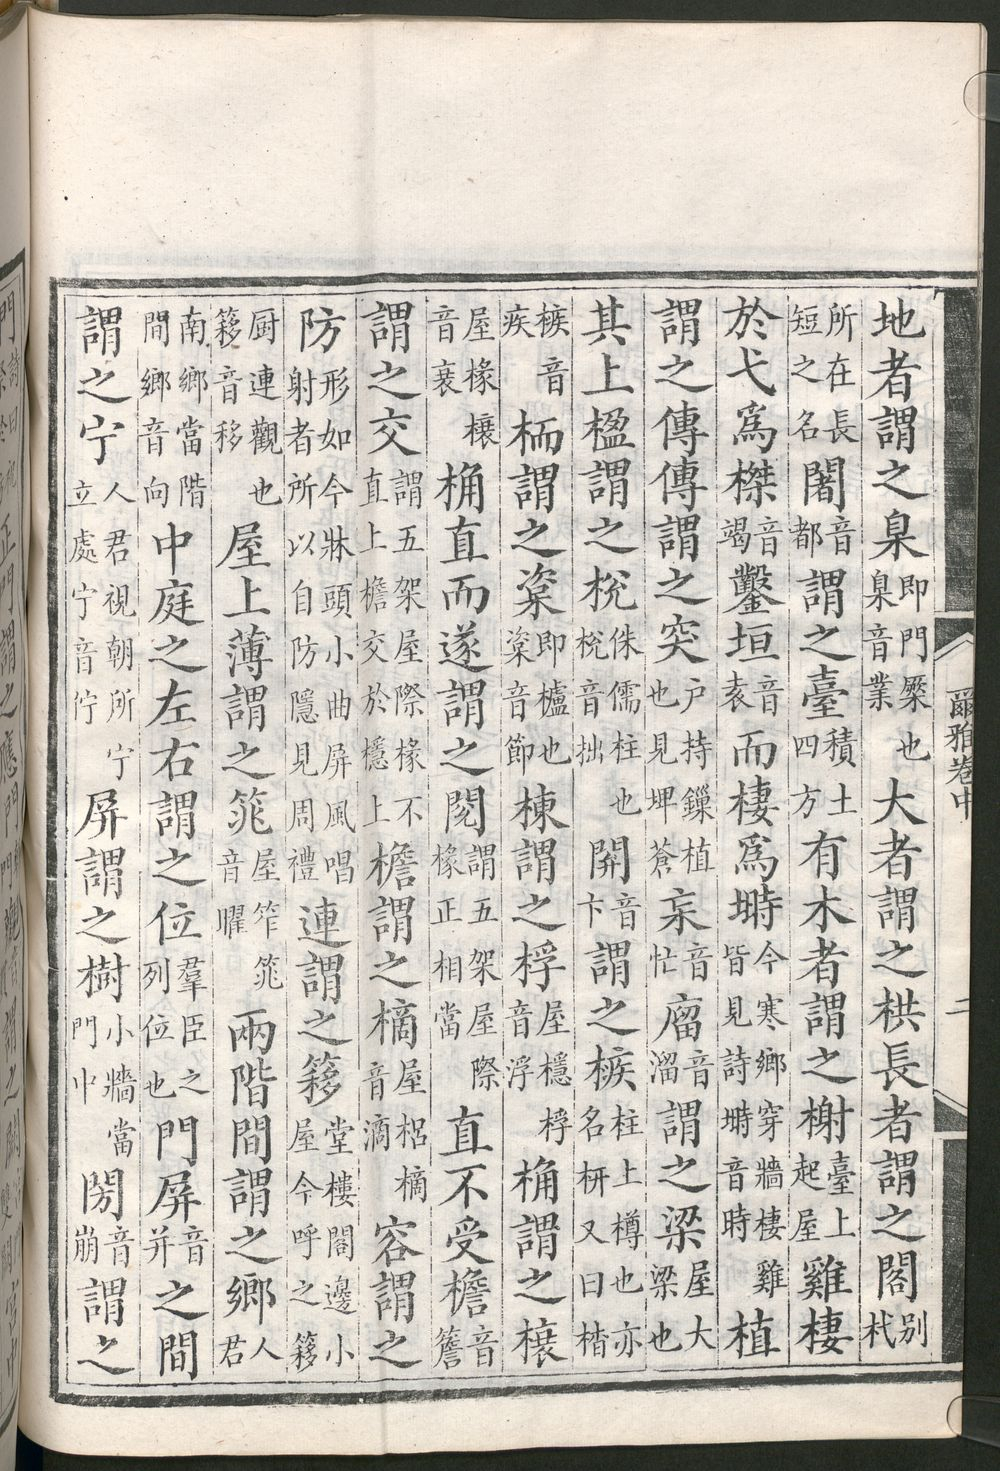 爾雅卷中
二
地者謂之臬即門橜也臬音業大者謂之栱長者謂之閣別杙
所在長短之名闍音都謂之臺積土四方有木者謂之榭臺上起屋雞棲
於弋爲榤音竭鑿垣音袁而棲爲塒今寒鄉穿牆棲雞皆見詩塒音時植
謂之傳傳謂之突戶持鏁植也見埤蒼杗音忙廇音溜謂之梁屋大梁也
其上楹謂之梲侏儒柱也梲音拙閞音卞謂之槉柱上樽也亦名枅又曰楷
槉音疾栭謂之楶即櫨也楶音節棟謂之桴屋檼桴音浮桷謂之榱
屋椽榱音衰桷直而遂謂之閱謂五架屋際椽正相當直不受檐音簷
謂之交謂五架屋際椽不直上檐交於檼上檐謂之樀屋梠樀音滴容謂之
防形如今牀頭小曲屏風唱射者所以自防隱見周禮連謂之簃堂樓閣邊小屋今呼之簃
厨連觀也簃音移屋上薄謂之筄屋笮筄音曜兩階間謂之鄉人君
南鄉當階間鄉音向中庭之左右謂之位羣臣之列位也門屏音并之間
謂之宁人君視朝所宁立處宁音佇屏謂之樹小牆當門中閍音崩謂之